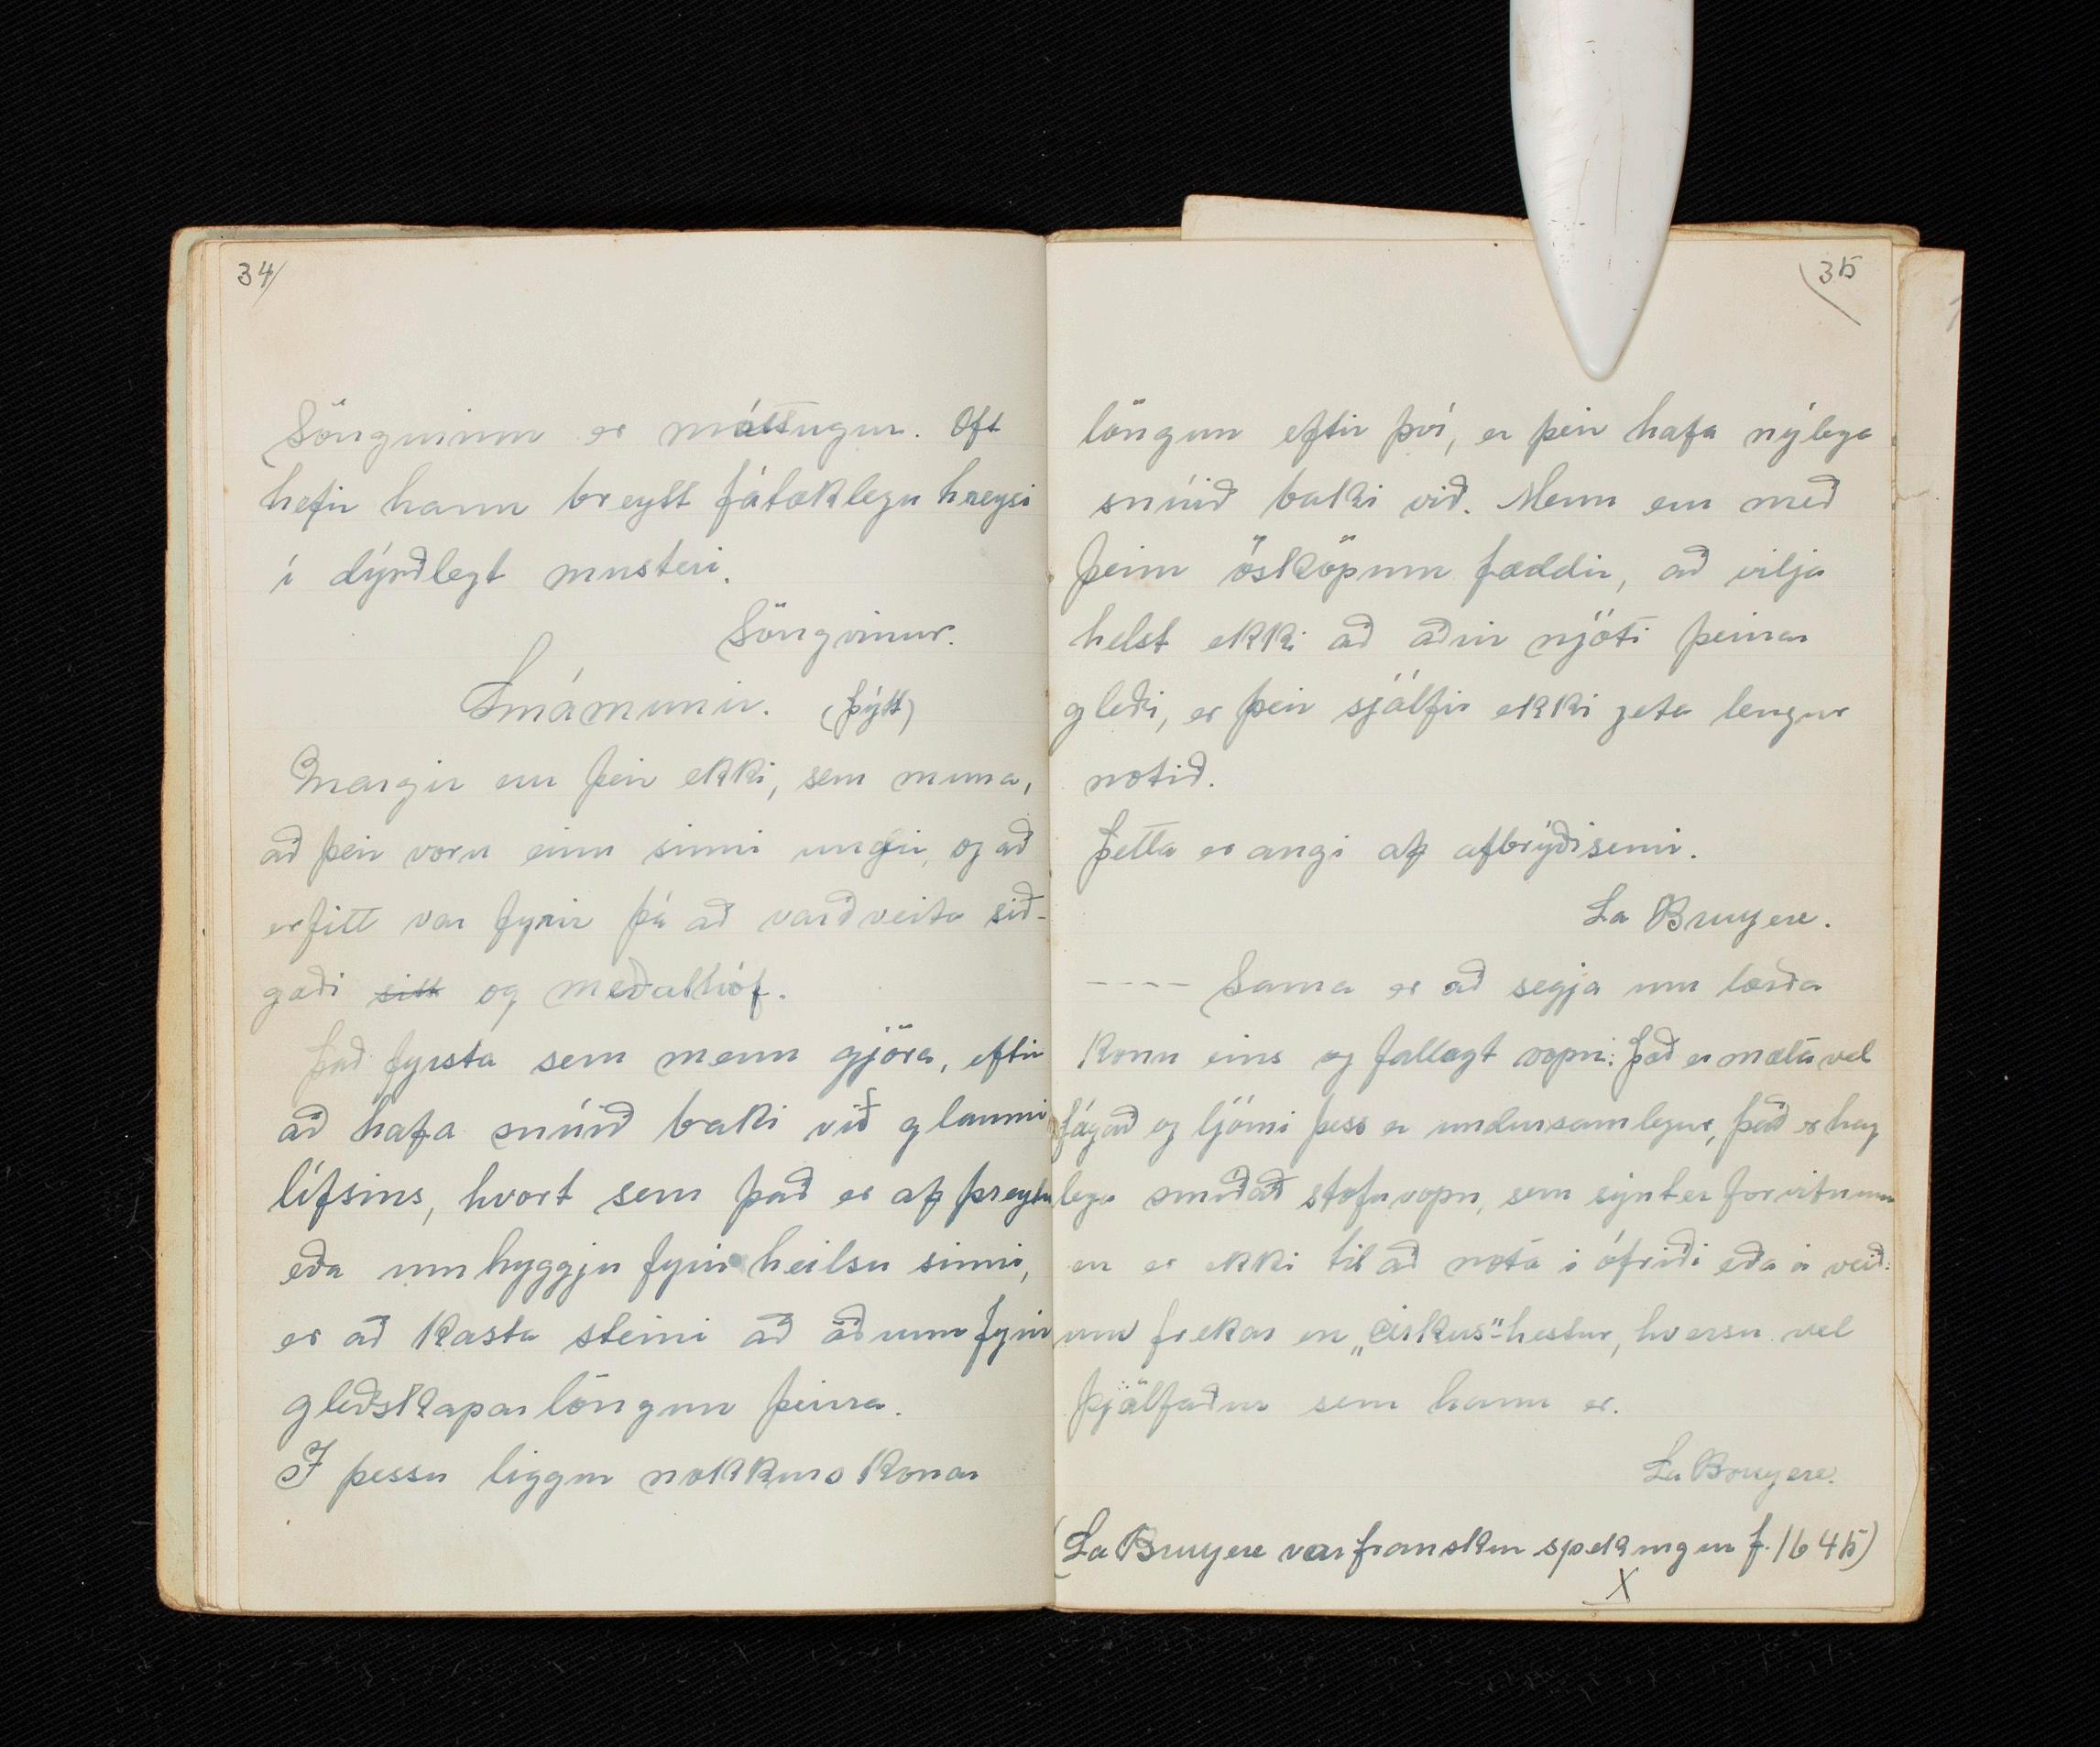 34/
Söngurinn er máttugur. Oft
hefir hann breytt fátæklegu hreysi
í dýrðlegt musteri.
Söngvinur.
Smámunir. (Þýtt)
Margir eru þeir ekki, sem muna,
að þeir voru einu sinni ungir, og að
erfitt var fyrir þá að varðveita sið-
gæði sitt og meðalhóf.
Það fyrsta sem menn gjöra, eftir
að hafa snúið baki við glaumi
lífsins, hvort sem það er af þreytu
eða umhyggju fyrir heilsu sinni,
er að kasta steini að öðrum fyrir
gleðskaparlöngun þeirra.
Í þessu liggur nokkurs konar
35
löngun eftir því, er þeir hafa nýlega
snúið baki við. Menn eru með
þeim ósköpum fæddir, að vilja
helst ekki að aðrir njóti þeirrar
gleði, er þeir sjálfir ekki geta lengur
notið.
Þetta er angi af afbrýðisemi.
La Bruyere.
---- Sama er að segja um lærða
konu eins og fallegt vopn: Það er mætavel
fágað og ljómi þess er undursamlegur, það er hag
lega smíðað stofuvopn, sem sýnt er forvitnum
en er ekki til að nota í ófriði eða á veið:
um frekar en „cirkus"-hestur, hversu vel
þjálfaður sem hann er.
La Bruyere.
(La Bruyere var franskur spekingur f. 1645)
X